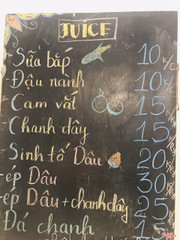 JUICE
- Sữa bắp 10k/c
- Đậu nành 10k
- Cam vắt 15k
- Chanh dây 15
- Sinh tố Dâu 20k
- ép Dâu 30k
- ép Dâu + chanh dây 25
Đá chanh 15